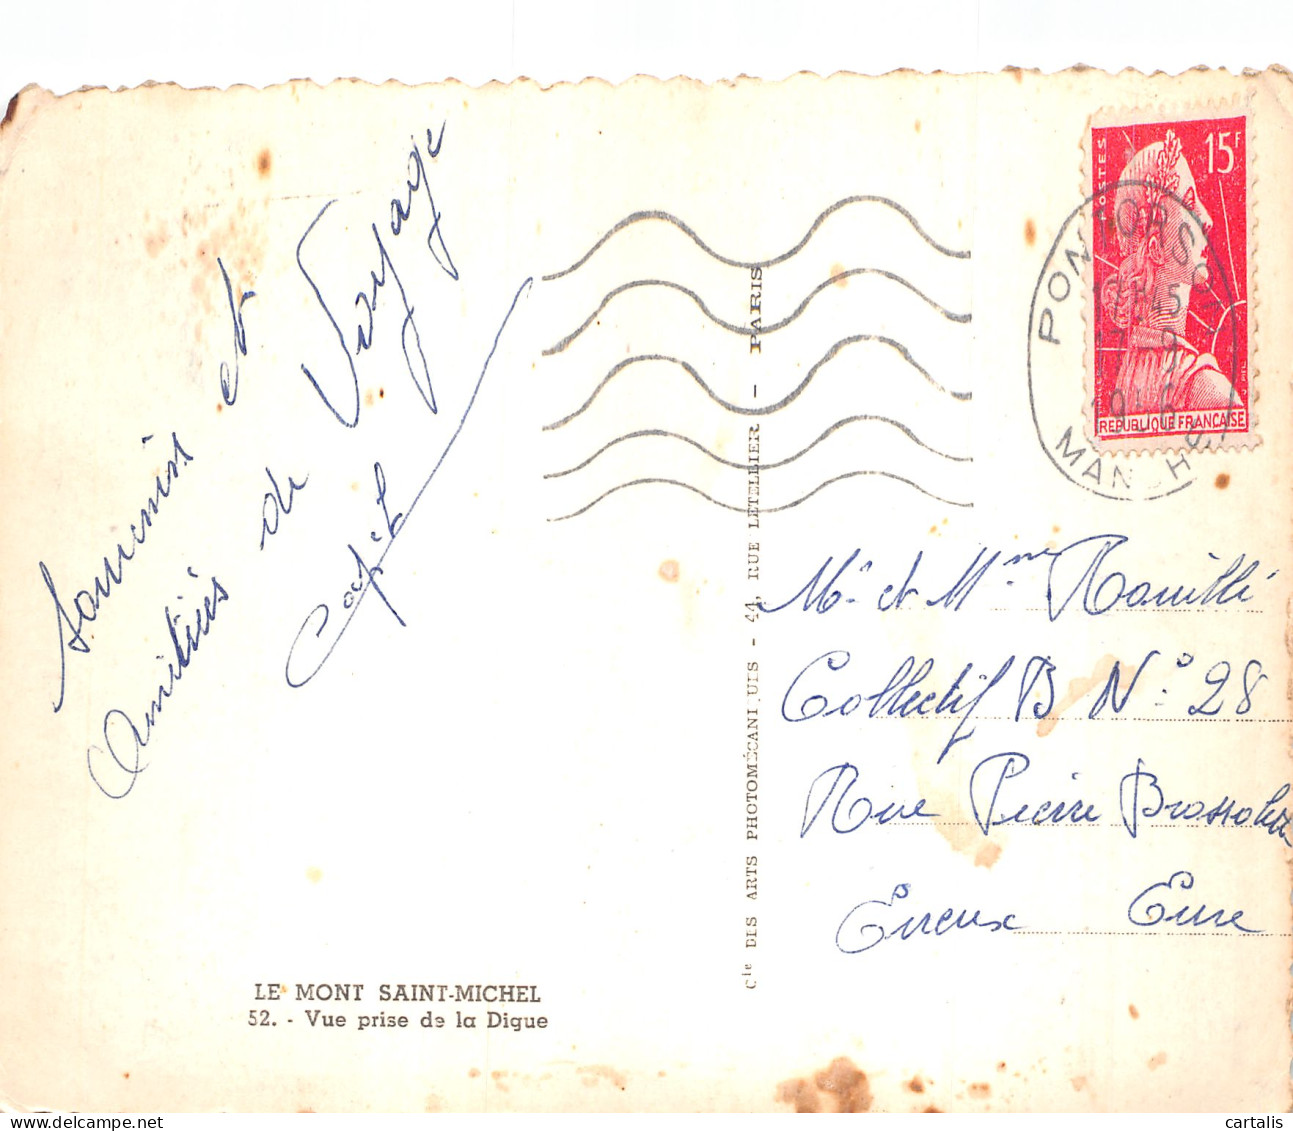 Souvenirs et
Amitiés de Voyage
POSTES
15F
REPUBLIQUE FRANÇAISE
PONTORSON
17H45
17-9
MANCHE
Mr et Mme
Collectif B N° 28
Rue Pierre Brossolette
Evreux Eure
Cie DES ARTS PHOTOMÉCANIQUES - 44, RUE LETELLIER - PARIS
LE MONT SAINT-MICHEL
52. - Vue prise de la Digue
cartalis